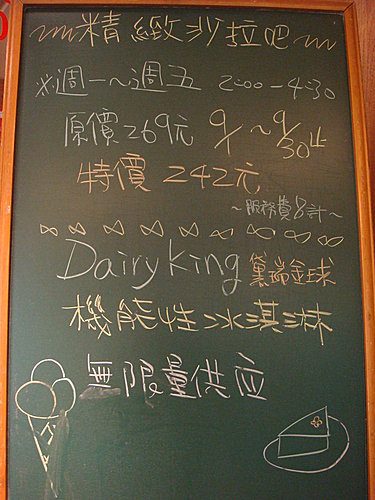 精緻沙拉吧
※週一～週五 2:00-4:30
原價269元 9/1～9/30止
特價 242元
～服務費另計～
Dairy King 黛瑞金球
機能性冰淇淋
無限量供应